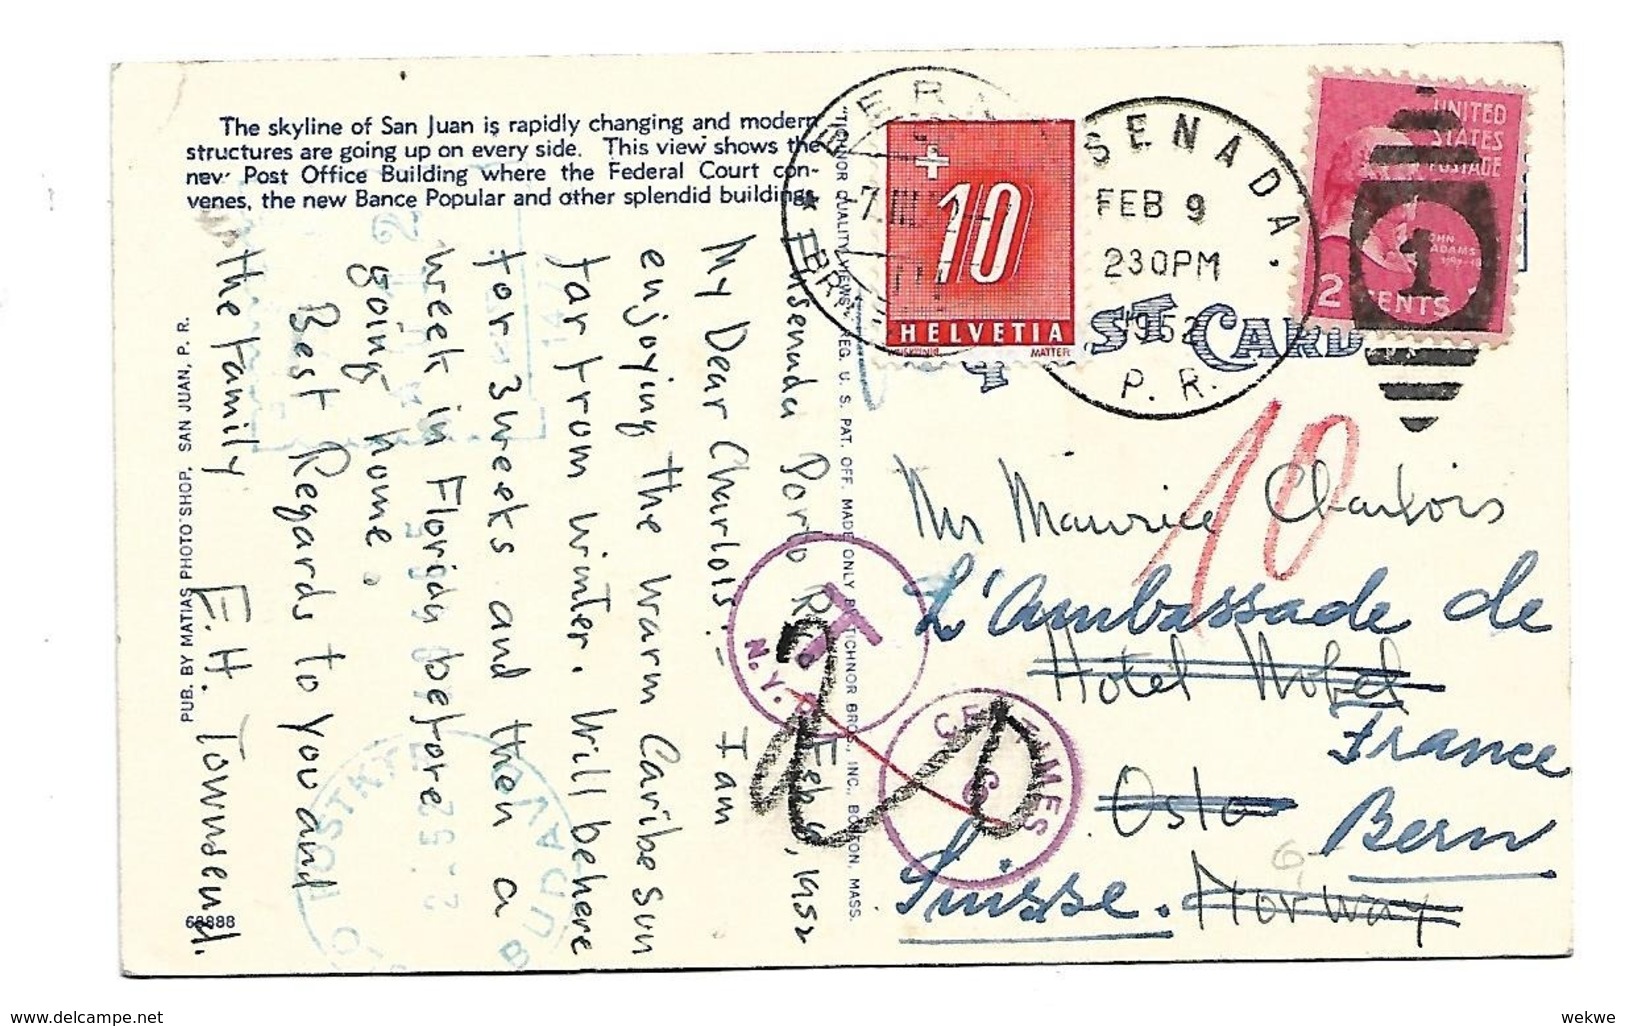 The skyline of San Juan is rapidly changing and modern
structures are going up on every side. This view shows the
new Post Office Building where the Federal Court con-
venes, the new Bance Popular and other splendid buildings.
PUB. BY MATIAS PHOTO SHOP, SAN JUAN, P. R.
68888
"TICHNOR QUALITY VIEWS" REG. U. S. PAT. OFF. MADE ONLY BY TICHNOR BROS., INC., BOSTON, MASS.
ST CARD
Ensenada Porto Rico Feb 9, 1952
My Dear Charlois:- I am
enjoying the warm Caribe sun
far from winter. Will be here
for 3 weeks and then a
week in Florida before
going home.
Best Regards to you and
the family
E.H. Townsend.
HELVETIA
10
MATTER
BERN
7.III
SENADA.
FEB 9
230PM
1952
P. R.
UNITED
STATES
POSTAGE
JOHN
ADAMS
2 CENTS
1
10
T
N.Y.
CENTIMES
6
Mr Maurice Charlois
L'Ambassade de
Hotel Nobel
France
Oslo
Bern
Suisse.
Norway
POSTKT
wekwe
delcampe.net